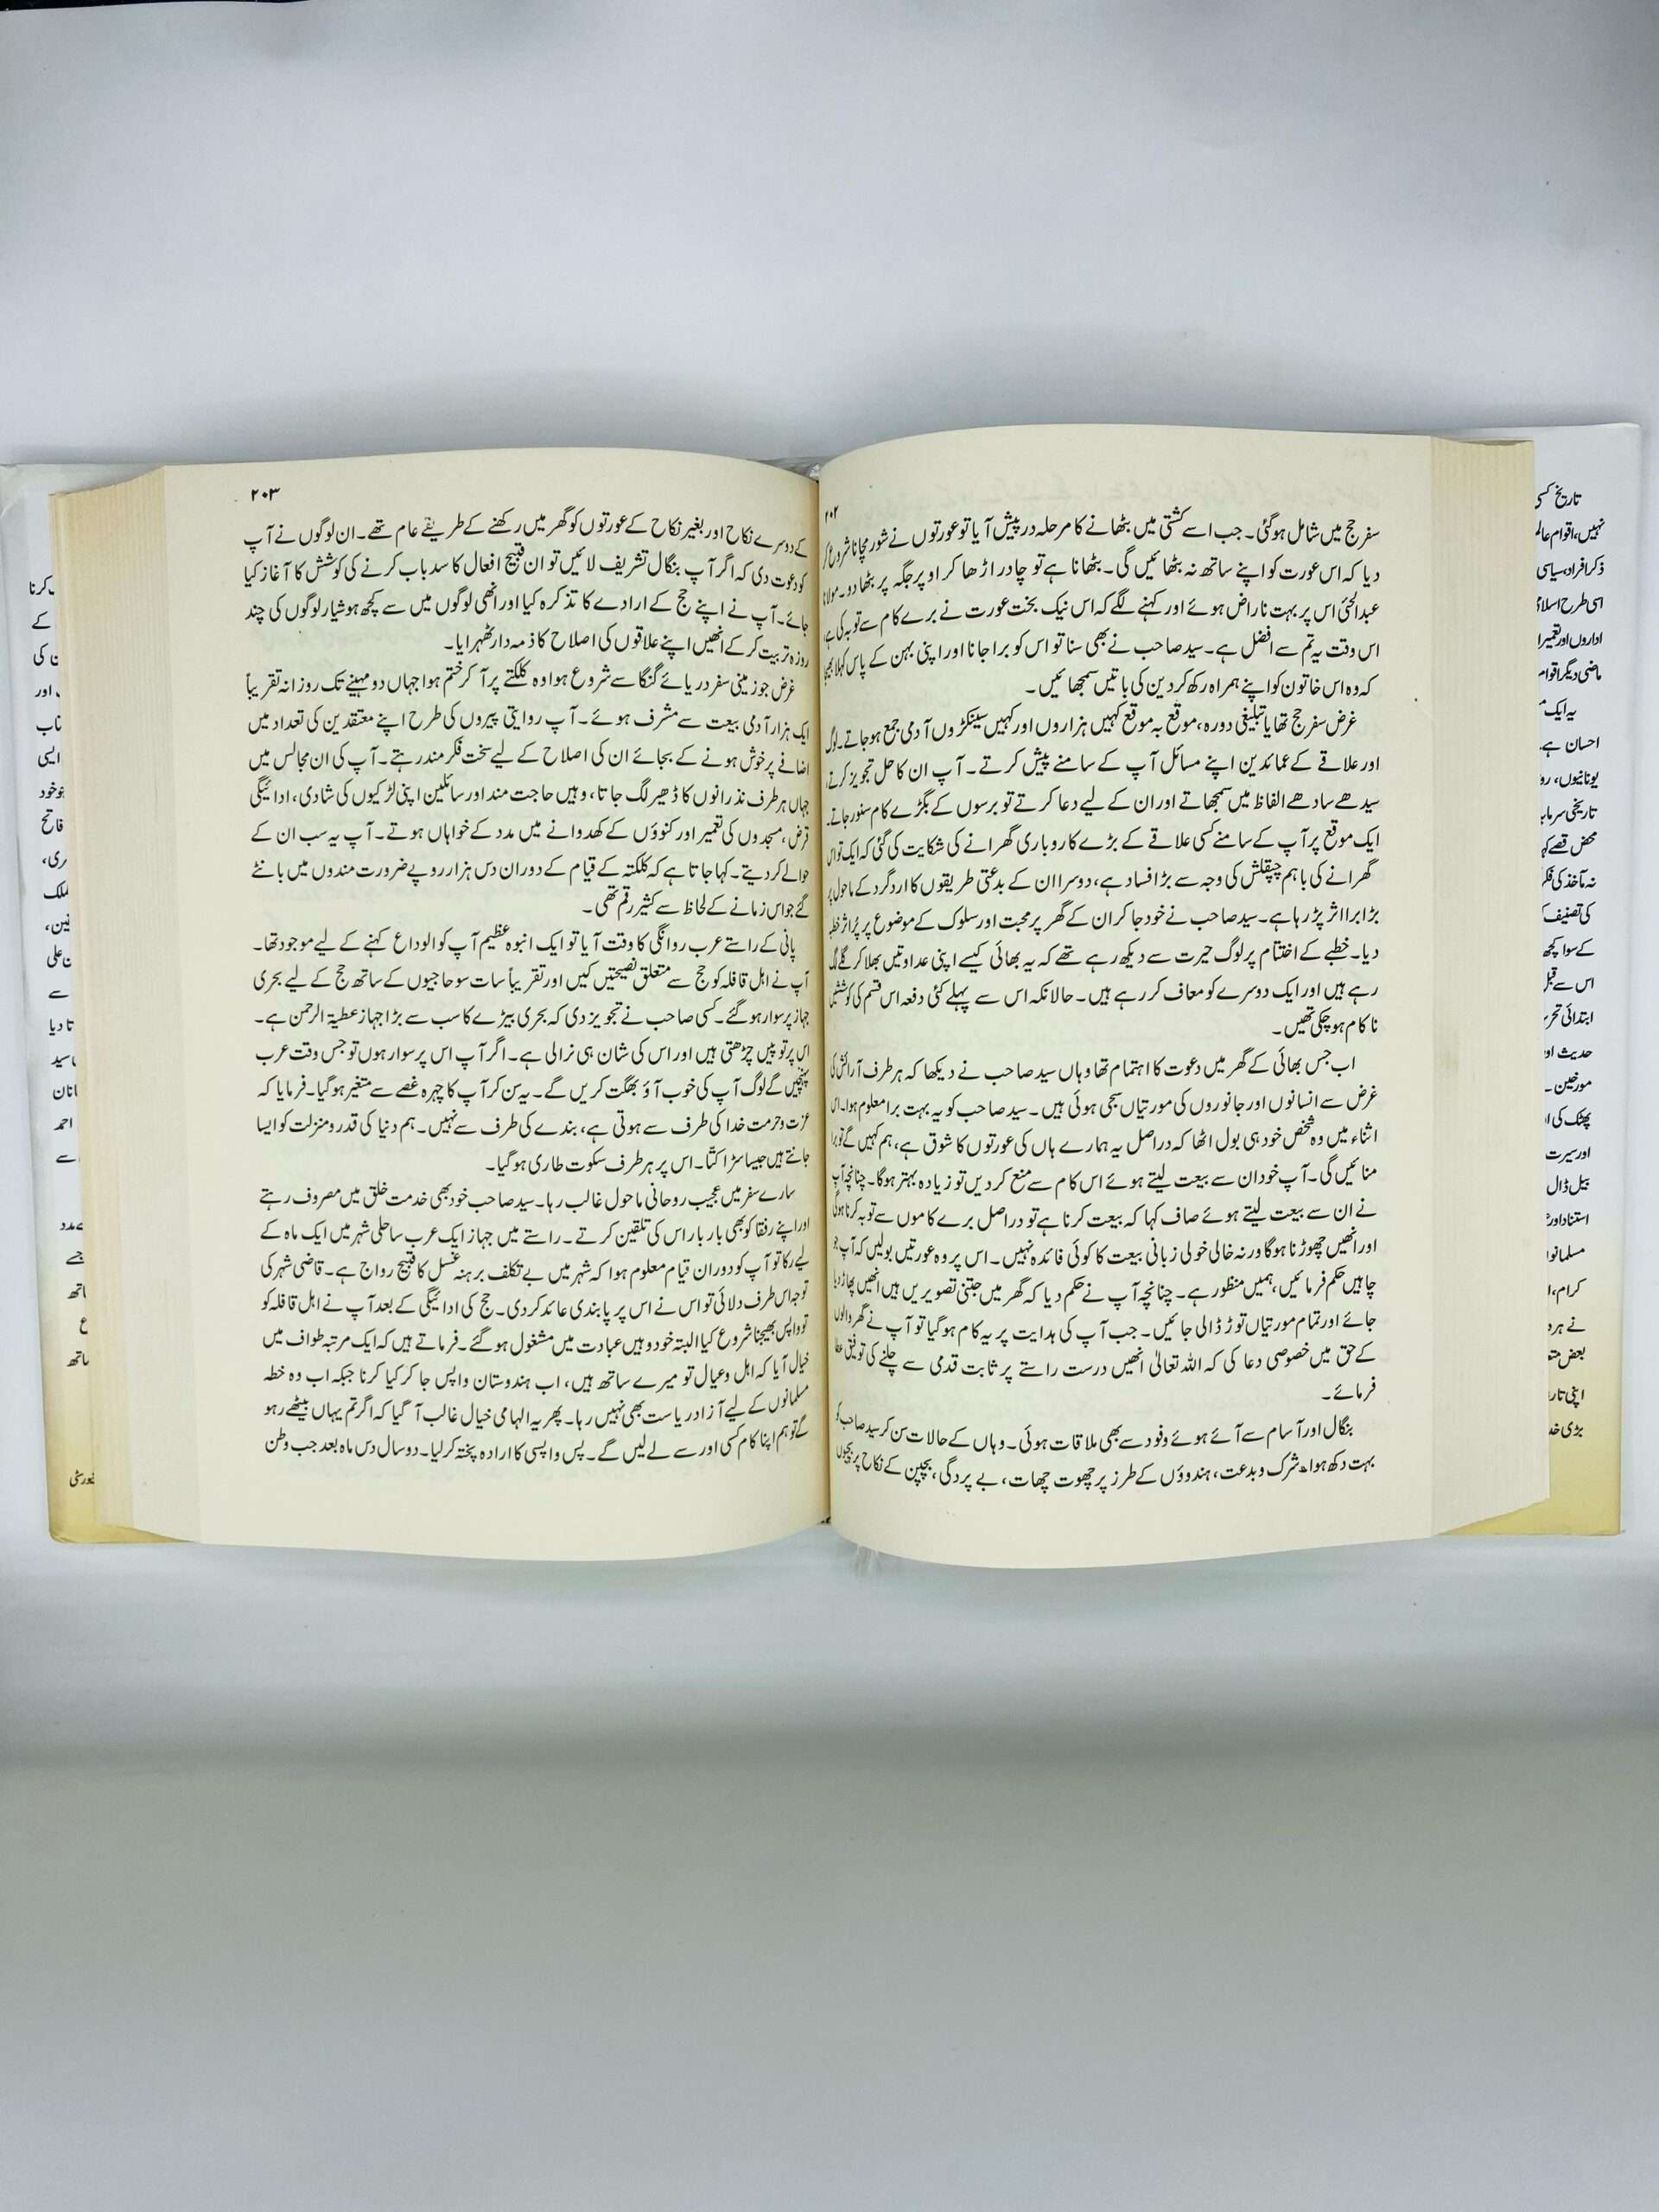 ۲۰۲
سفر حج میں شامل ہوگئی۔ جب اسے کشتی میں بٹھانے کا مرحلہ درپیش آیا تو عورتوں نے شور مچانا شروع کر
دیا کہ اس عورت کو اپنے ساتھ نہ بٹھائیں گی۔ بٹھانا ہے تو چادر اڑھا کر اوپر جگہ پر بٹھا دو۔ مولانا
عبدالحئی اس پر بہت ناراض ہوئے اور کہنے لگے کہ اس نیک بخت عورت نے برے کام سے توبہ کی ہے،
اس وقت یہ تم سے افضل ہے۔ سید صاحب نے بھی سنا تو اس کو برا جانا اور اپنی بہن کے پاس کہلا بھیجا
کہ وہ اس خاتون کو اپنے ہمراہ رکھ کر دین کی باتیں سمجھائیں۔
غرض سفر حج تھا یا تبلیغی دورہ، موقع بہ موقع کہیں ہزاروں اور کہیں سینکڑوں آدمی جمع ہو جاتے۔ لوگ
اور علاقے کے عمائدین اپنے مسائل آپ کے سامنے پیش کرتے۔ آپ ان کا حل تجویز کرتے
سیدھے سادھے الفاظ میں سمجھاتے اور ان کے لیے دعا کرتے تو برسوں کے بگڑے کام سنور جاتے۔
ایک موقع پر آپ کے سامنے کسی علاقے کے بڑے کاروباری گھرانے کی شکایت کی گئی کہ ایک تو اس
گھرانے کی باہم چپقلش کی وجہ سے بڑا فساد ہے، دوسرا ان کے بدعتی طریقوں کا اردگرد کے ماحول پر
بڑا برا اثر پڑ رہا ہے۔ سید صاحب نے خود جا کر ان کے گھر پر محبت اور سلوک کے موضوع پر پُراثر خطبہ
دیا۔ خطبے کے اختتام پر لوگ حیرت سے دیکھ رہے تھے کہ یہ بھائی کیسے اپنی عداوتیں بھلا کر گلے لگ
رہے ہیں اور ایک دوسرے کو معاف کر رہے ہیں۔ حالانکہ اس سے پہلے کئی دفعہ اس قسم کی کوششیں
ناکام ہو چکی تھیں۔
اب جس بھائی کے گھر میں دعوت کا اہتمام تھا وہاں سید صاحب نے دیکھا کہ ہر طرف آرائش کی
غرض سے انسانوں اور جانوروں کی مورتیاں سجی ہوئی ہیں۔ سید صاحب کو یہ بہت برا معلوم ہوا۔ اس
اثناء میں وہ شخص خود ہی بول اٹھا کہ دراصل یہ ہمارے ہاں کی عورتوں کا شوق ہے، ہم کہیں گے تو برا
منائیں گی۔ آپ خود ان سے بیعت لیتے ہوئے اس کام سے منع کر دیں تو زیادہ بہتر ہوگا۔ چنانچہ آپ
نے ان سے بیعت لیتے ہوئے صاف کہا کہ بیعت کرنا ہے تو دراصل برے کاموں سے توبہ کرنا ہوگی
اور انھیں چھوڑنا ہوگا ورنہ خالی خولی زبانی بیعت کا کوئی فائدہ نہیں۔ اس پر وہ عورتیں بولیں کہ آپ جو
چاہیں حکم فرمائیں، ہمیں منظور ہے۔ چنانچہ آپ نے حکم دیا کہ گھر میں جتنی تصویریں ہیں انھیں پھاڑ دیا
جائے اور تمام مورتیاں توڑ ڈالی جائیں۔ جب آپ کی ہدایت پر یہ کام ہو گیا تو آپ نے گھر والوں
کے حق میں خصوصی دعا کی کہ اللہ تعالیٰ انھیں درست راستے پر ثابت قدمی سے چلنے کی توفیق عطا
فرمائے۔
بنگال اور آسام سے آئے ہوئے وفود سے بھی ملاقات ہوئی۔ وہاں کے حالات سن کر سید صاحب کو
بہت دکھ ہوا۔ شرک و بدعت، ہندوؤں کے طرز پر چھوت چھات، بے پردگی، بچپن کے نکاح پر بچیوں
۲۰۳
کے دوسرے نکاح اور بغیر نکاح کے عورتوں کو گھر میں رکھنے کے طریقے عام تھے۔ ان لوگوں نے آپ
کو دعوت دی کہ اگر آپ بنگال تشریف لائیں تو ان قبیح افعال کا سدباب کرنے کی کوشش کا آغاز کیا
جائے۔ آپ نے اپنے حج کے ارادے کا تذکرہ کیا اور انھی لوگوں میں سے کچھ ہوشیار لوگوں کی چند
روزہ تربیت کر کے انھیں اپنے علاقوں کی اصلاح کا ذمہ دار ٹھہرایا۔
غرض جو زمینی سفر دریائے گنگا سے شروع ہوا وہ کلکتے پر آ کر ختم ہوا جہاں دو مہینے تک روزانہ تقریباً
ایک ہزار آدمی بیعت سے مشرف ہوئے۔ آپ روایتی پیروں کی طرح اپنے معتقدین کی تعداد میں
اضافے پر خوش ہونے کے بجائے ان کی اصلاح کے لیے سخت فکر مند رہتے۔ آپ کی ان مجالس میں
جہاں ہر طرف نذرانوں کا ڈھیر لگ جاتا، وہیں حاجت مند اور سائلین اپنی لڑکیوں کی شادی، ادائیگی
قرض، مسجدوں کی تعمیر اور کنوؤں کے کھدوانے میں مدد کے خواہاں ہوتے۔ آپ یہ سب ان کے
حوالے کر دیتے۔ کہا جاتا ہے کہ کلکتہ کے قیام کے دوران دس ہزار روپے ضرورت مندوں میں بانٹے
گئے جو اس زمانے کے لحاظ سے کثیر رقم تھی۔
پانی کے راستے عرب روانگی کا وقت آیا تو ایک انبوہ عظیم آپ کو الوداع کہنے کے لیے موجود تھا۔
آپ نے اہل قافلہ کو حج سے متعلق نصیحتیں کیں اور تقریباً سات سو حاجیوں کے ساتھ حج کے لیے بحری
جہاز پر سوار ہو گئے۔ کسی صاحب نے تجویز دی کہ بحری بیڑے کا سب سے بڑا جہاز عطیۃ الرحمن ہے۔
اس پر توپیں چڑھتی ہیں اور اس کی شان ہی نرالی ہے۔ اگر آپ اس پر سوار ہوں تو جس وقت عرب
پہنچیں گے لوگ آپ کی خوب آؤ بھگت کریں گے۔ یہ سن کر آپ کا چہرہ غصے سے متغیر ہو گیا۔ فرمایا کہ
عزت و حرمت خدا کی طرف سے ہوتی ہے، بندے کی طرف سے نہیں۔ ہم دنیا کی قدر و منزلت کو ایسا
جانتے ہیں جیسا سڑا کتّا۔ اس پر ہر طرف سکوت طاری ہو گیا۔
سارے سفر میں عجیب روحانی ماحول غالب رہا۔ سید صاحب خود بھی خدمت خلق میں مصروف رہتے
اور اپنے رفقا کو بھی بار بار اس کی تلقین کرتے۔ راستے میں جہاز ایک عرب ساحلی شہر میں ایک ماہ کے
لیے رکا تو آپ کو دوران قیام معلوم ہوا کہ شہر میں بے تکلف برہنہ غسل کا قبیح رواج ہے۔ قاضی شہر کی
توجہ اس طرف دلائی تو اس نے اس پر پابندی عائد کر دی۔ حج کی ادائیگی کے بعد آپ نے اہل قافلہ کو
تو واپس بھیجنا شروع کیا البتہ خود وہیں عبادت میں مشغول ہو گئے۔ فرماتے ہیں کہ ایک مرتبہ طواف میں
خیال آیا کہ اہل و عیال تو میرے ساتھ ہیں، اب ہندوستان واپس جا کر کیا کرنا جبکہ اب وہ خطہ
مسلمانوں کے لیے آزاد ریاست بھی نہیں رہا۔ پھر یہ الہامی خیال غالب آ گیا کہ اگر تم یہاں بیٹھے رہو
گے تو ہم اپنا کام کسی اور سے لے لیں گے۔ پس واپسی کا ارادہ پختہ کر لیا۔ دو سال دس ماہ بعد جب وطن
تاریخ کسی
نہیں، اقوام عالم
ذکر افراد، سیاسی
اسی طرح اسلا
اداروں اور تعمیر
ماضی دیگر اقوام
یہ ایک
احسان ہے
یونانیوں، رو
تاریخی سرمایہ
محض قصے
نہ مآخذ کی فکر
کی تصنیف
کے سوا کچھ
اس سے قبل
ابتدائی تحر
حدیث اور
مورخین۔
پھٹک کی
اور سیرت
بیل ڈال
استناد اور
مسلمانو
کرام،
نے ہر
بعض
اپنی تار
بڑی خد
کرنا
کے
کی
اور
ایسی
فاتح
ملک
علی
سے
تا دیا
سید
احمد
سے
مدد
جسے